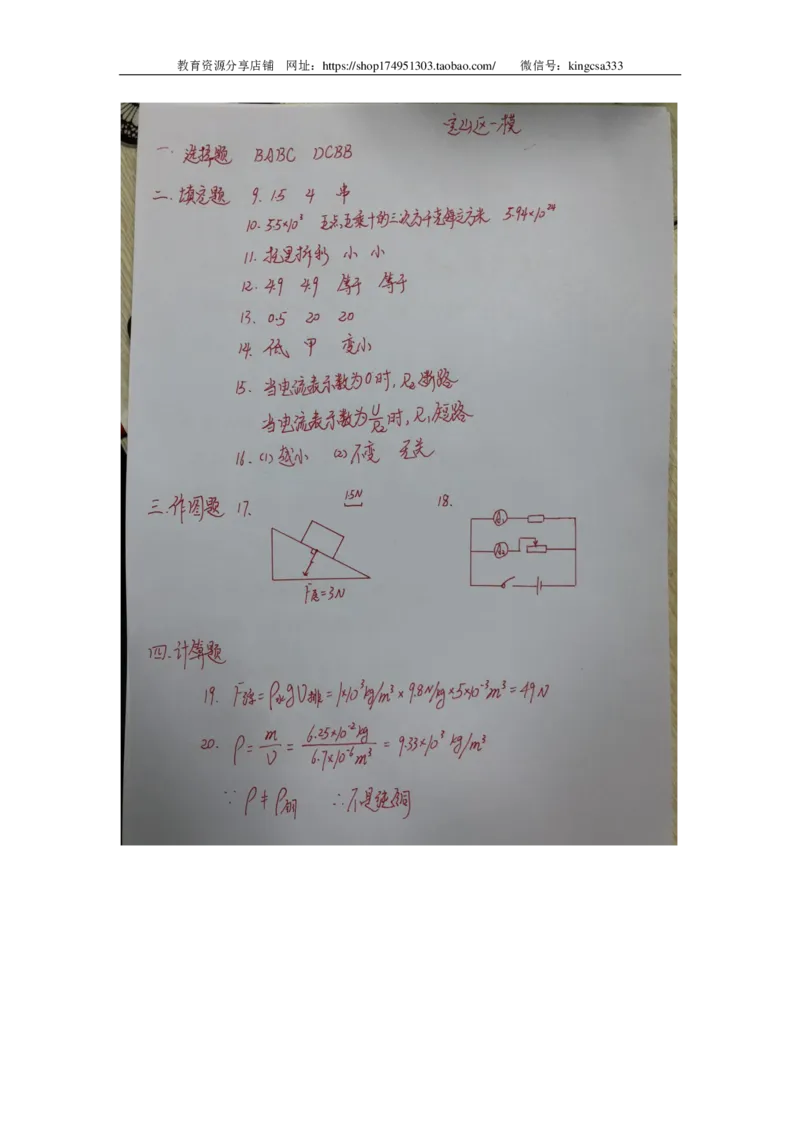 教育资源分享店铺 网址：https://shop174951303.taobao.com/ 微信号：kingcsa333
宝山区一模
一. 选择题 BABC DCBB
二. 填空题 9. 1.5 4 串
10. 5.5×10³ 五点五乘十的三次方千克每立方米 5.94×10²⁴
11. 托里拆利 小 小
12. 4.9 4.9 等于 等于
13. 0.5 20 20
14. 低 甲 变小
15. 当电流表示数为0时, R₂断路
当电流表示数为U/R₂时, R₁短路
16. (1) 越小 (2) 不变 无关
三. 作图题 17. 1.5N 18.
A₁
A₂
F压=3N
四. 计算题
19. F浮=ρ水gV排=1×10³kg/m³×9.8N/kg×5×10⁻³m³=49N
20. ρ=m/V=6.25×10⁻²kg/6.7×10⁻⁶m³=9.33×10³kg/m³
∵ρ≠ρ铜 ∴不是纯铜